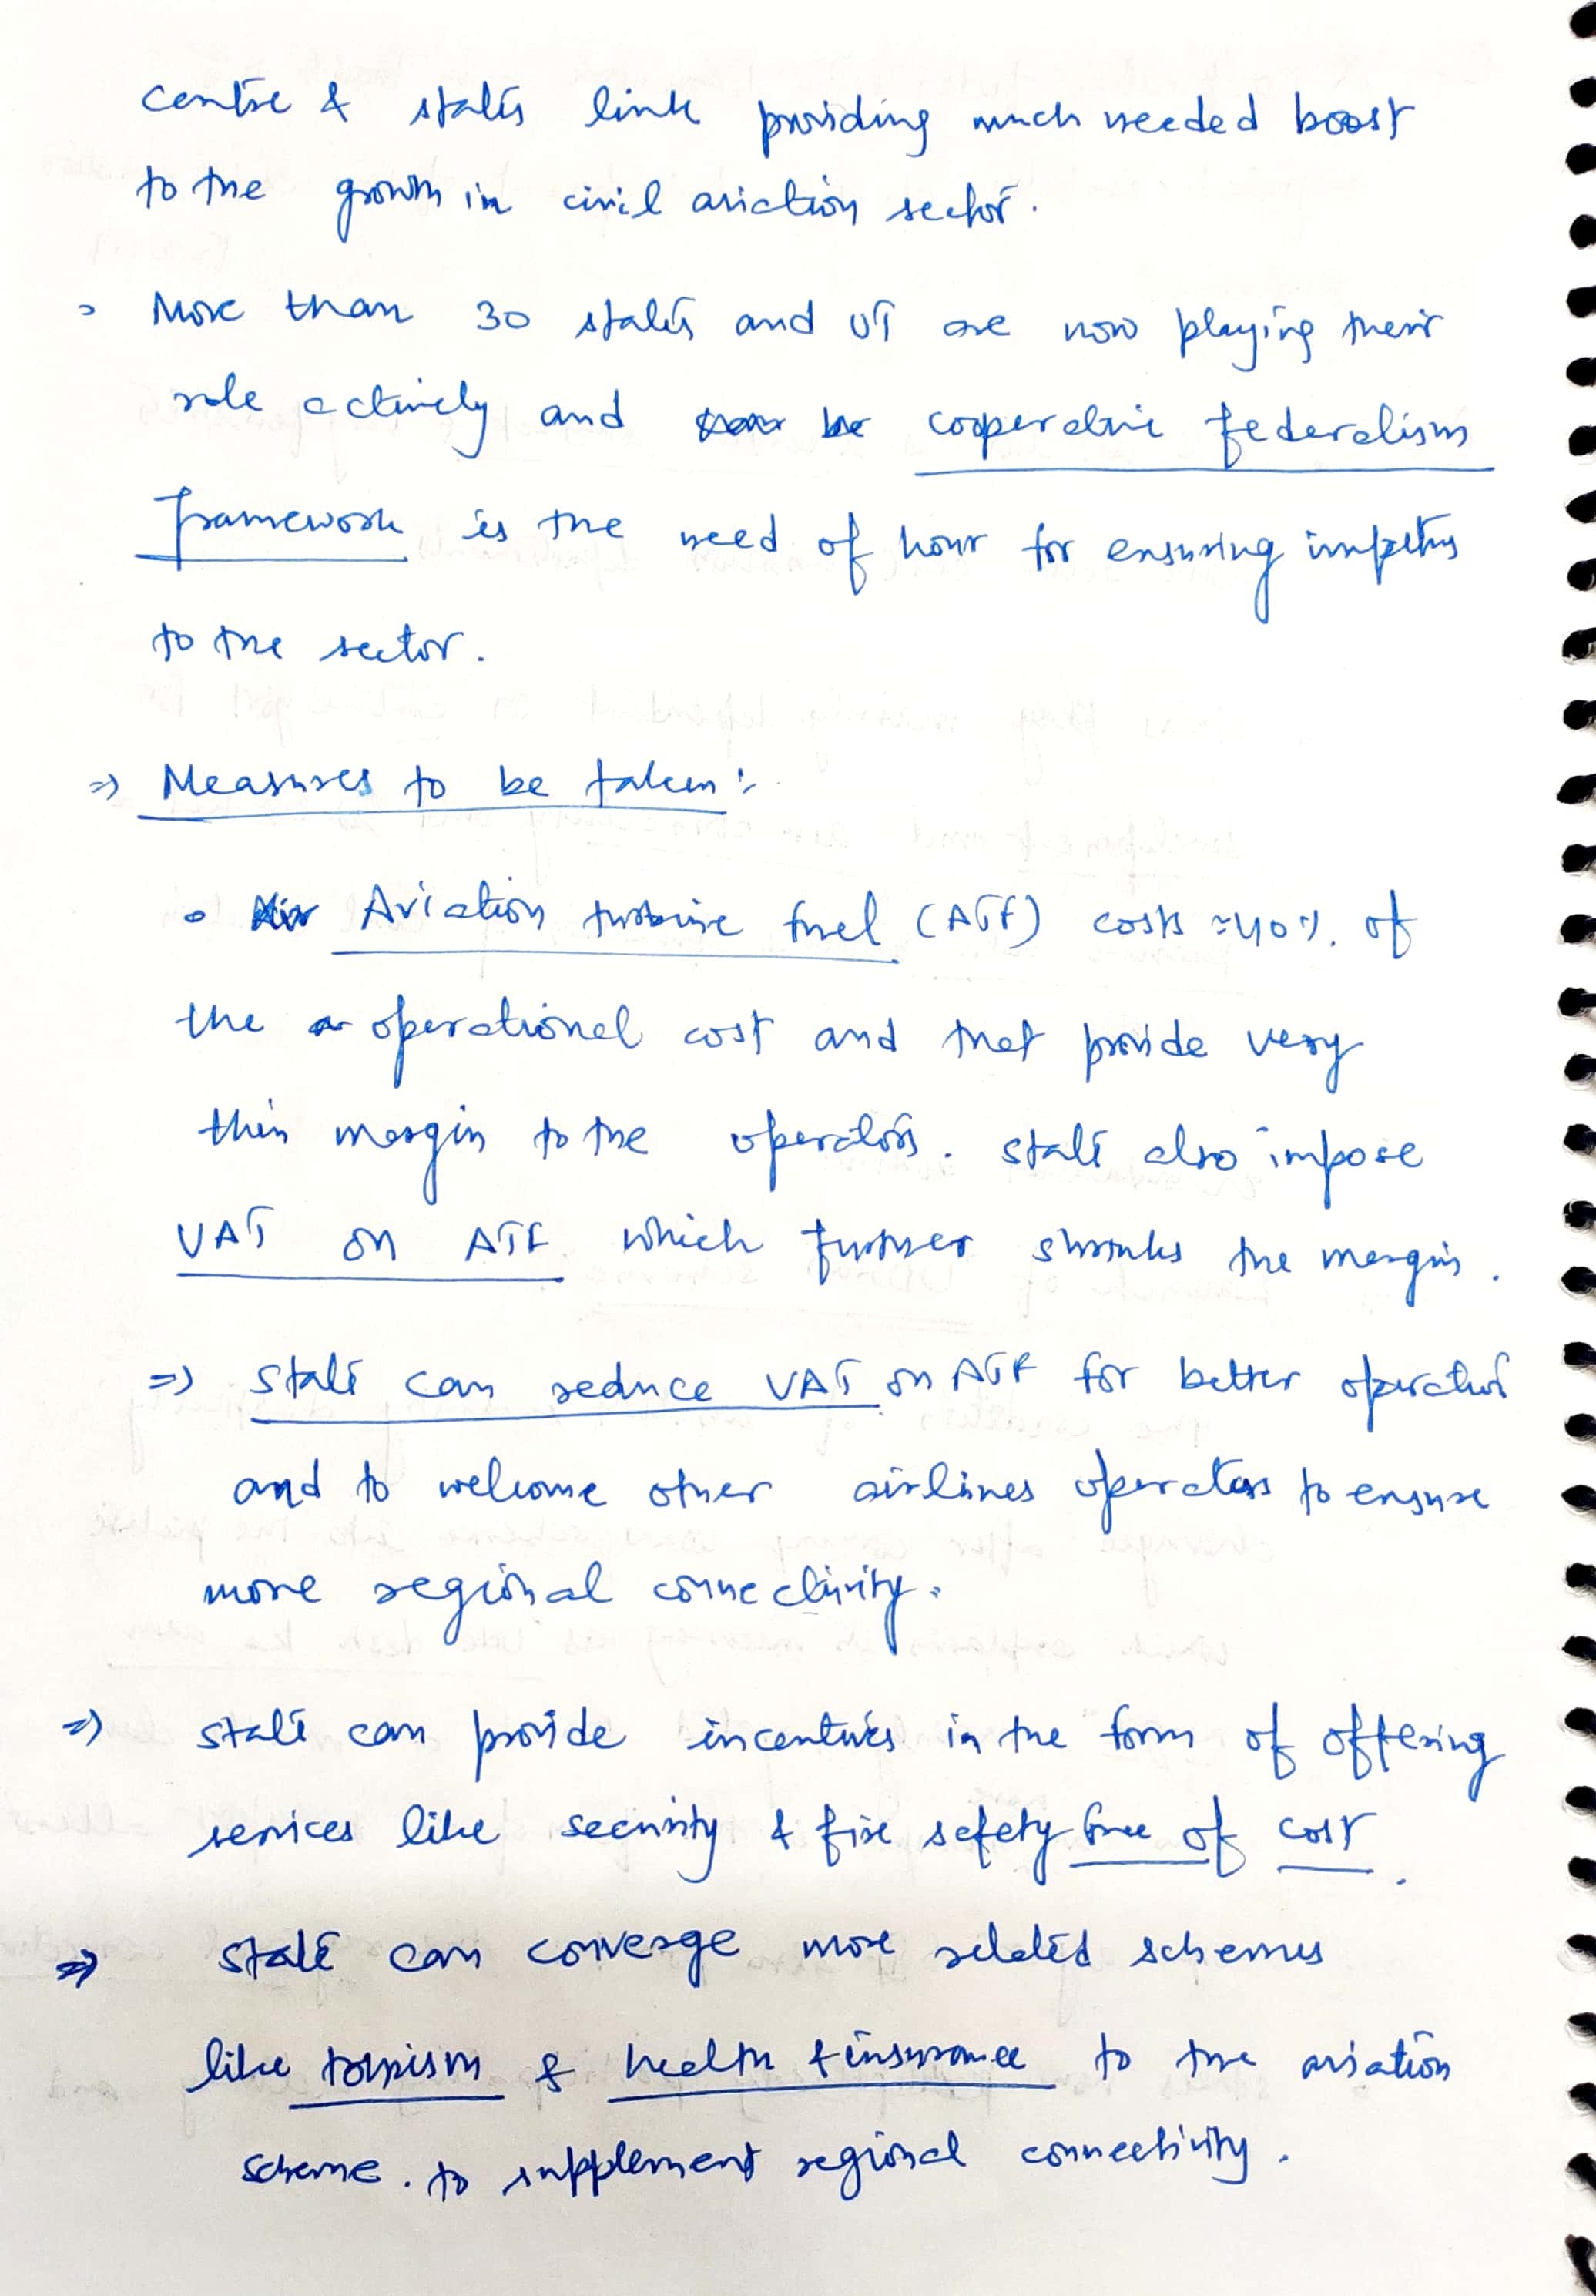 Centre & states link providing much needed boost
to the growth in civil aviation sector.
> More than 30 states and UT are now playing their
role actively and cooperative federalism
framework is the need of hour for ensuring impetus
to the sector.
=> Measures to be taken:
• Aviation turbine fuel (ATF) costs ≈40% of
the operational cost and that provide very
thin margin to the operators. State also impose
VAT on ATF which further shrinks the margin.
=> State can reduce VAT on ATF for better operation
and to welcome other airlines operators to ensure
more regional connectivity.
=> State can provide incentives in the form of offering
services like security & fire safety free of cost.
=> State can converge more related schemes
like tourism & health & insurance to the aviation
scheme. to supplement regional connectivity.